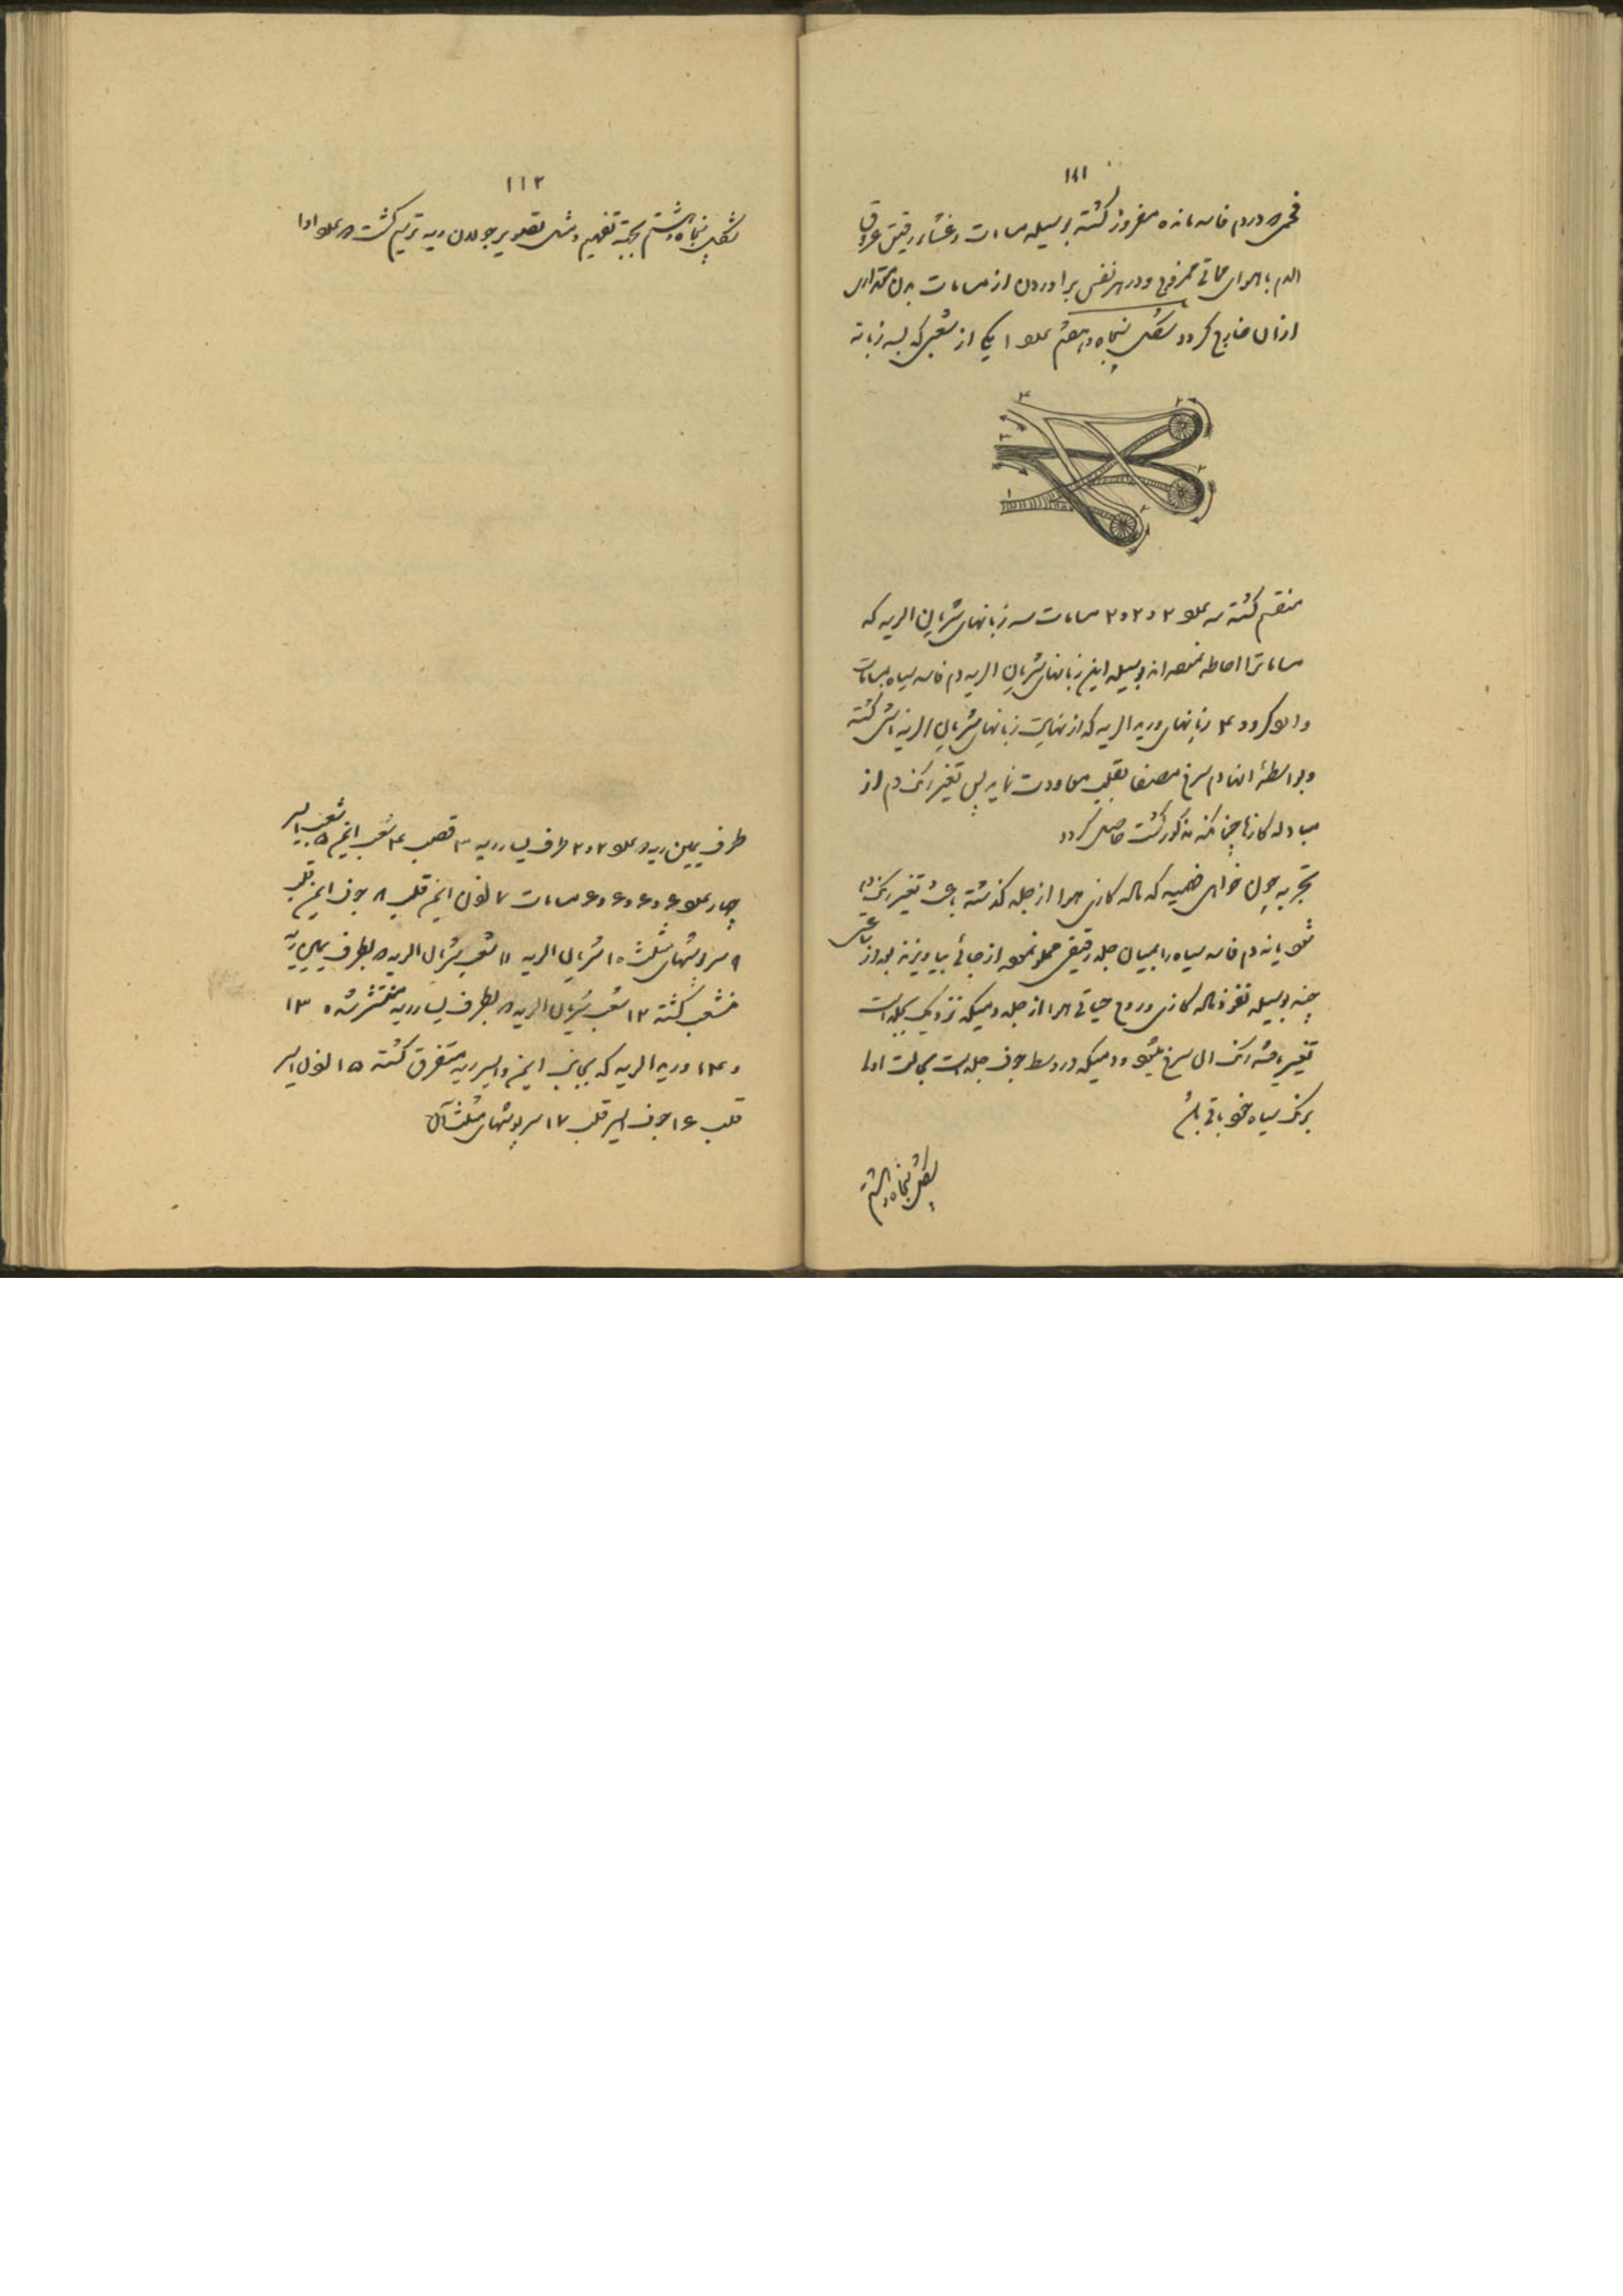 ۱۱۱
فحمی در دم فاسد مانده مفروز گشته بوسیله مسامات و غشاء رقیق عروق
الدم با هوای حیاتی ممزوج و در هر نفس برآوردن از مسامات بدن مقداری
ازان خارج گردد شکل پنجاه و هفتم علو ۱ یکی از شعبی که بسه زبانه
۳
۲
۳
۲
۱
۲
منقسم گشته علو ۲ و ۲ و ۲ مسامات سه زبانهای شریان الریه که
مساماترا احاطه نموده اند بوسیله این زبانهای شریان الریه دم فاسد سیاه بمسامات
وا گردد ۴ زبانهای ورید الریه که از نهایت زبانهای شریان الریه ناشی گشته
و بواسطۀ انها دم سرخ مصفا بقلب معاودت نماید پس تغیر رنگ دم از
مبادله گازها چنانکه مذکور گشت حاصل گردد
تجربه چون خواهی فهمید که ماده گازی هوا از جلد گذشته باعث تغیر رنگ دم
شود باید دم فاسد سیاه را بمیان جلد رقیقی مملو نموده از جائی بیاویزند بعد از ساعتی
چند بوسیله نفوذ ماده گازی و روح حیاتی هوا از جلد دمیکه نزدیک بجلد است
تغییر یافته رنگ ان سرخ میشود و دمیکه در وسط جوف جلد است بحالت اولی
برنگ سیاه خود باقی باشد
شکل پنجاه و هشتم
۱۱۲
شکل پنجاه و هشتم بجهة تفهیم و مثل تصویر جولان ریه ترسیم گشت علو ۱ و ۱
طرف یمین ریه و علو ۲ و ۲ طرف یسار ریه ۳ قصب ۴ شعب ایمن ۵ شعب ایسر
چهار علو ۶ و ۶ و ۶ و ۶ مسامات ۷ اذن ایمن قلب ۸ جوف ایمن قلب
۹ سرپوشهای مثلث ۱۰ شریان الریه ۱۱ شعب شریان الریه بطرف یمین ریه
منشعب گشته ۱۲ شعب شریان الریه بطرف یسار ریه منتشر شده ۱۳
و ۱۴ ورید الریه که بجانب ایمن و ایسر ریه متفرق گشته ۱۵ اذن ایسر
قلب ۱۶ جوف ایسر قلب ۱۷ سرپوشهای مثلث آن